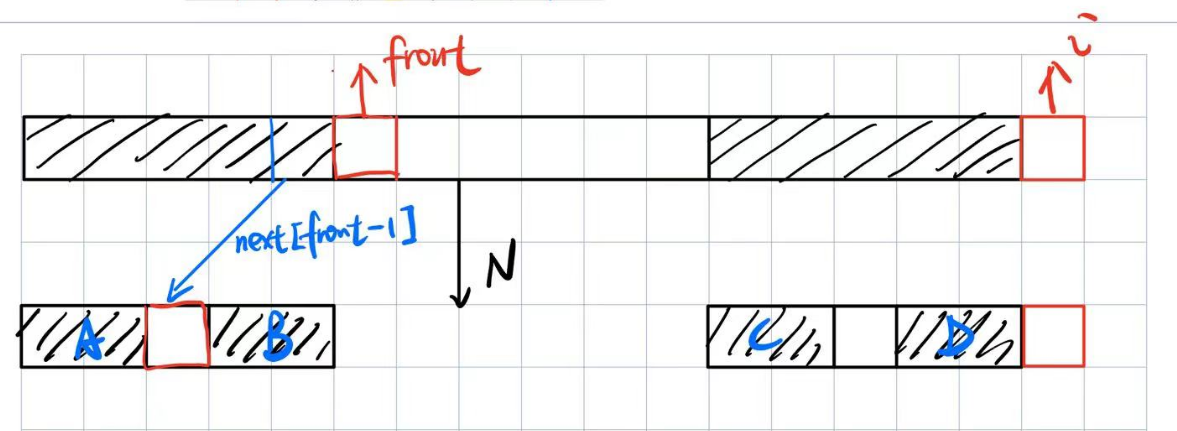 front
i
next[front-1]
N
A B C D